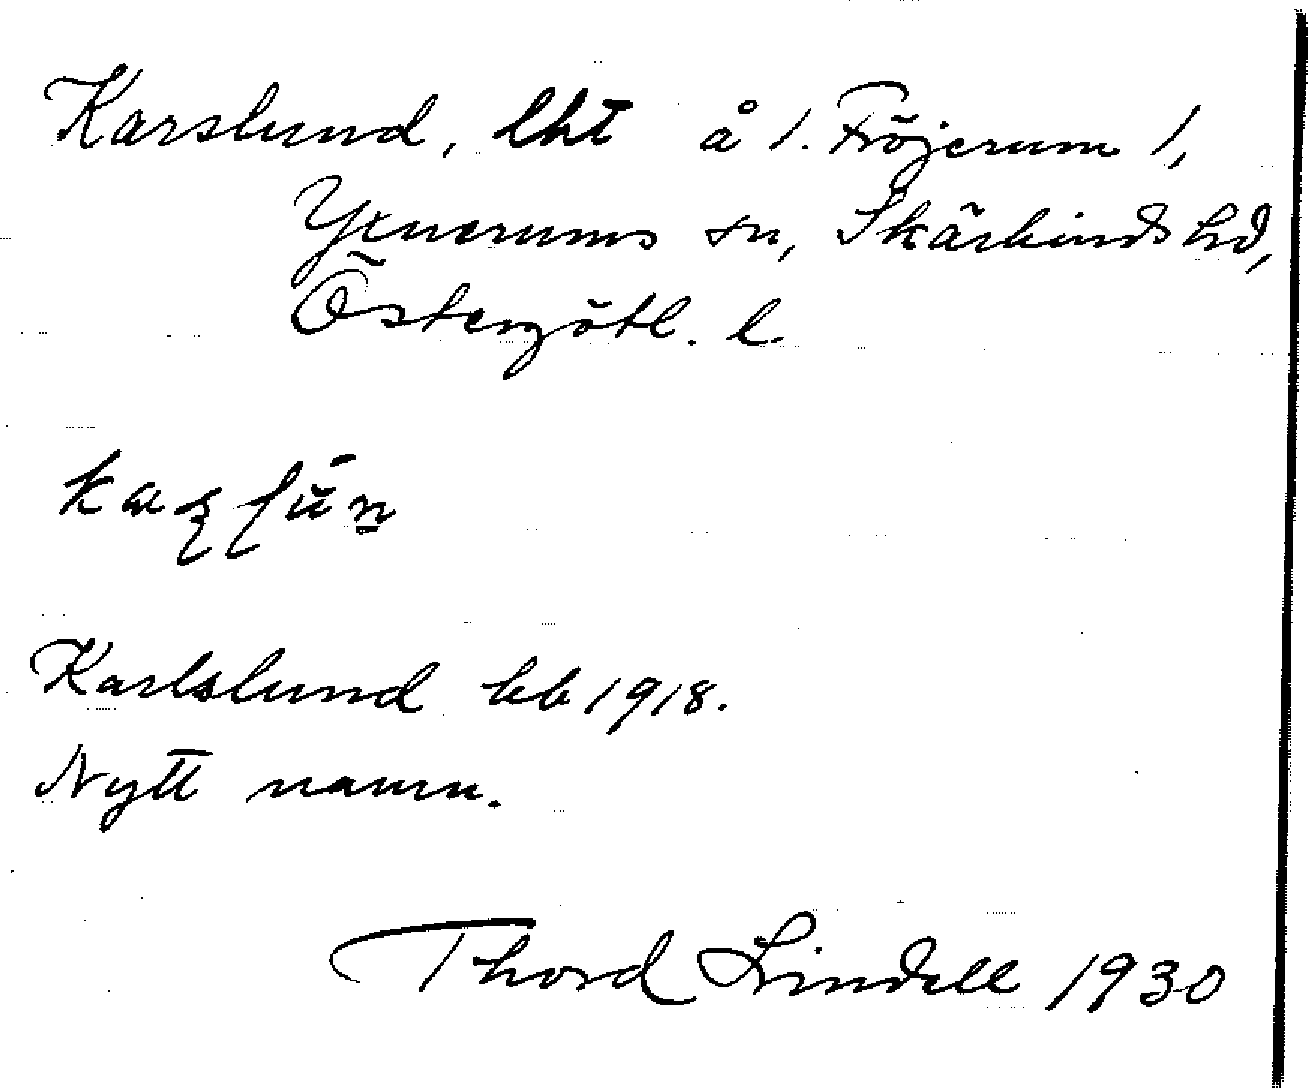 Karslund, lht å 1. Fröjerum 1,
Yxnerums sn, Skärkinds hd,
Östergötl. l.
Karlslund kb 1918.
Nytt namn.
Thord Lindell 1930